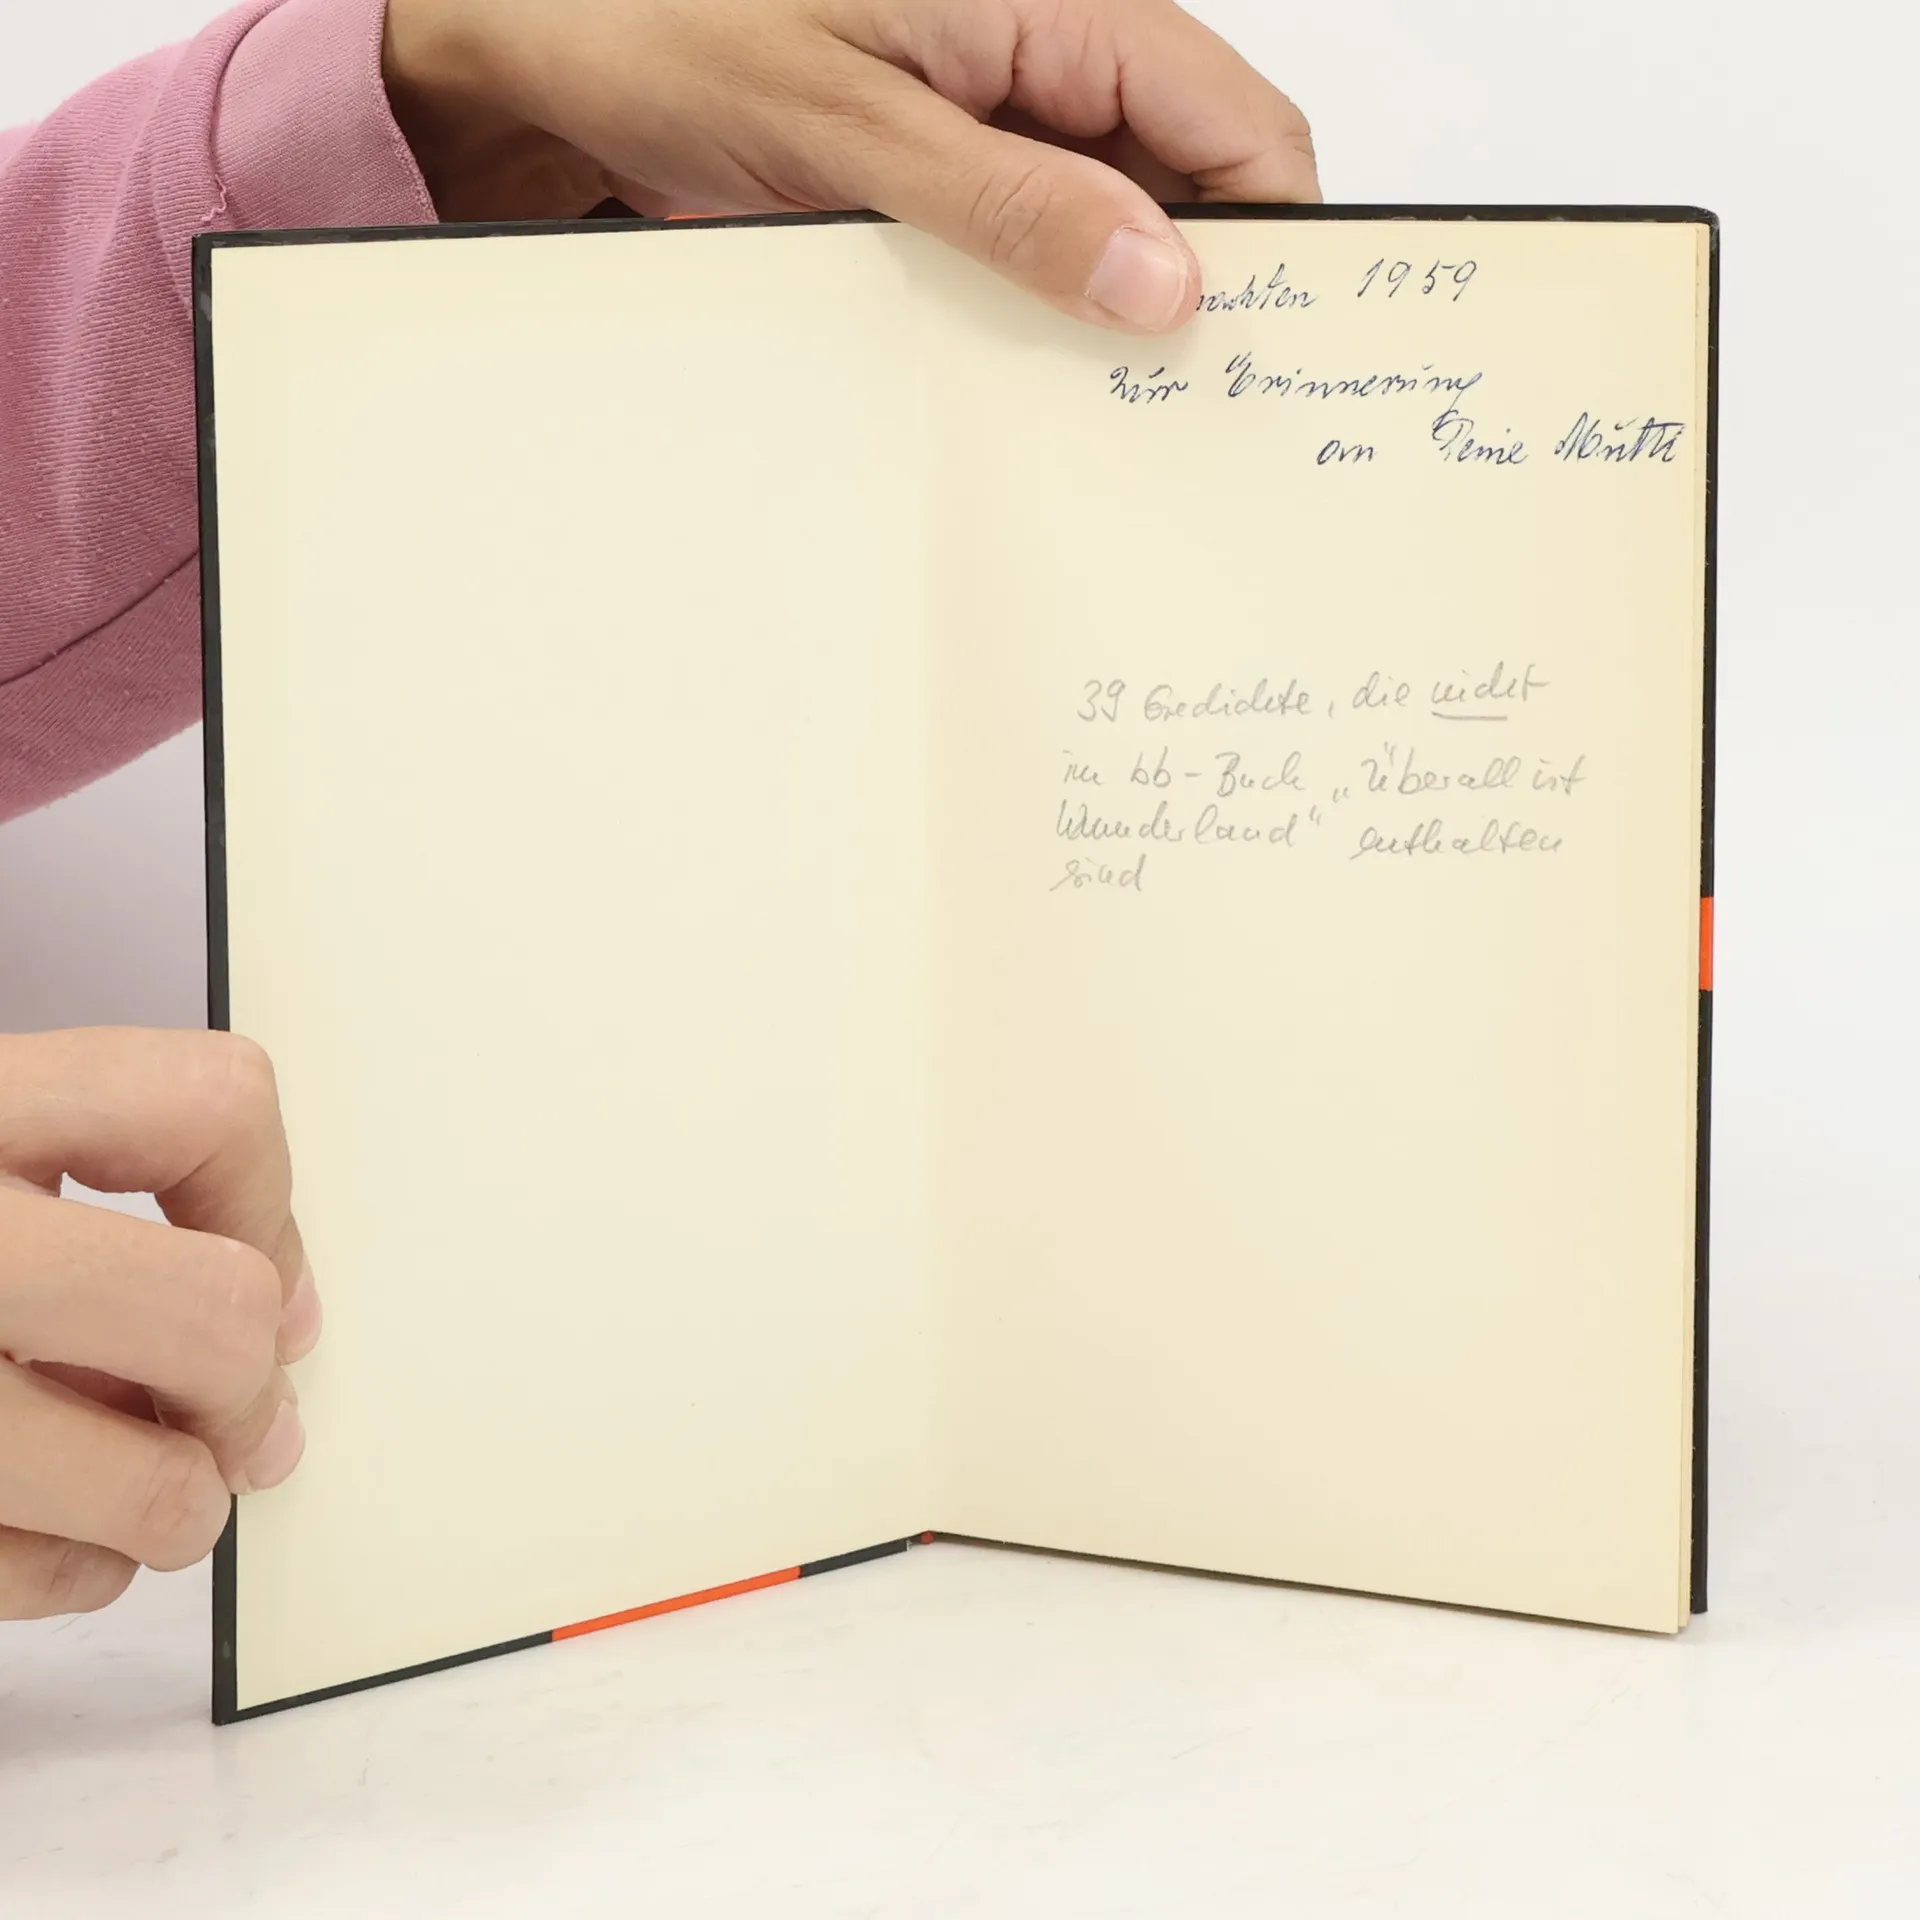 nachten 1959
zur Erinnerung
an Deine Mutti
39 Gedichte, die nicht
im bb-Buch „Überall ist
Wunderland“ enthalten
sind